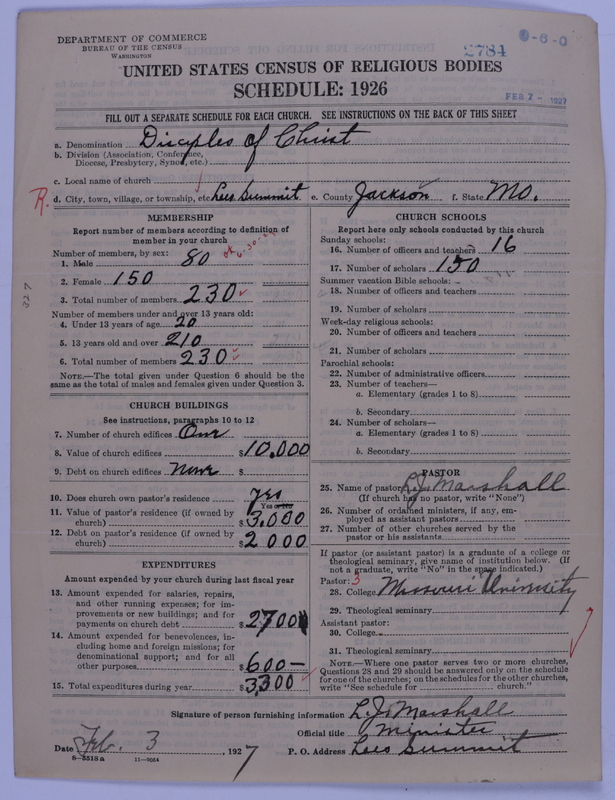 DEPARTMENT OF COMMERCE
BUREAU OF THE CENSUS
WASHINGTON
2784
0-6-0
UNITED STATES CENSUS OF RELIGIOUS BODIES
SCHEDULE: 1926
FEB 7 - 1927
FILL OUT A SEPARATE SCHEDULE FOR EACH CHURCH. SEE INSTRUCTIONS ON THE BACK OF THIS SHEET
a. Denomination Disciples of Christ
b. Division (Association, Conference, Diocese, Presbytery, Synod, etc.)
c. Local name of church
R. d. City, town, village, or township, etc. Lees Summit e. County Jackson f. State Mo.
MEMBERSHIP
Report number of members according to definition of
member in your church
Number of members, by sex:
1. Male 80
2. Female 150
3. Total number of members 230
Number of members under and over 13 years old:
4. Under 13 years of age 20
5. 13 years old and over 210
6. Total number of members 230
NOTE.—The total given under Question 6 should be
same as the total of males and females given under Question 3.
327
CHURCH BUILDINGS
See instructions, paragraphs 10 to 12
7. Number of church edifices One
8. Value of church edifices $10,000
9. Debt on church edifices None $
10. Does church own pastor's residence Yes
Yes or No
11. Value of pastor's residence (if owned by
church) $3,000
12. Debt on pastor's residence (if owned by
church) $2000
EXPENDITURES
Amount expended by your church during last fiscal year
13. Amount expended for salaries, repairs,
and other running expenses; for im-
provements or new buildings; and for
payments on church debt $2700
14. Amount expended for benevolences, in-
cluding home and foreign missions; for
denominational support; and for all
other purposes $600—
15. Total expenditures during year $3,300
CHURCH SCHOOLS
Report here only schools conducted by this church
Sunday schools:
16. Number of officers and teachers 16
17. Number of scholars 150
Summer vacation Bible schools:
18. Number of officers and teachers
19. Number of scholars
Week-day religious schools:
20. Number of officers and teachers
21. Number of scholars
Parochial schools:
22. Number of administrative officers
23. Number of teachers—
a. Elementary (grades 1 to 8)
b. Secondary
24. Number of scholars—
a. Elementary (grades 1 to 8)
b. Secondary
PASTOR
25. Name of pastor L. J. Marshall
(If church has no pastor, write "None")
26. Number of ordained ministers, if any, em-
ployed as assistant pastors
27. Number of other churches served by the
pastor or his assistants
If pastor (or assistant pastor) is a graduate of a college or
theological seminary, give name of institution below. (If
not a graduate, write "No" in the space indicated.)
Pastor: 3
28. College Missouri University
29. Theological seminary
Assistant pastor:
30. College
31. Theological seminary
NOTE.—Where one pastor serves two or more churches,
Questions 28 and 29 should be answered only on the schedule
for one of the churches; on the schedules for the other churches,
write "See schedule for church."
Signature of person furnishing information L. J. Marshall
Official title Minister
Date Feb. 3, 1927 P. O. Address Lees Summit
8—5518a 11—9064